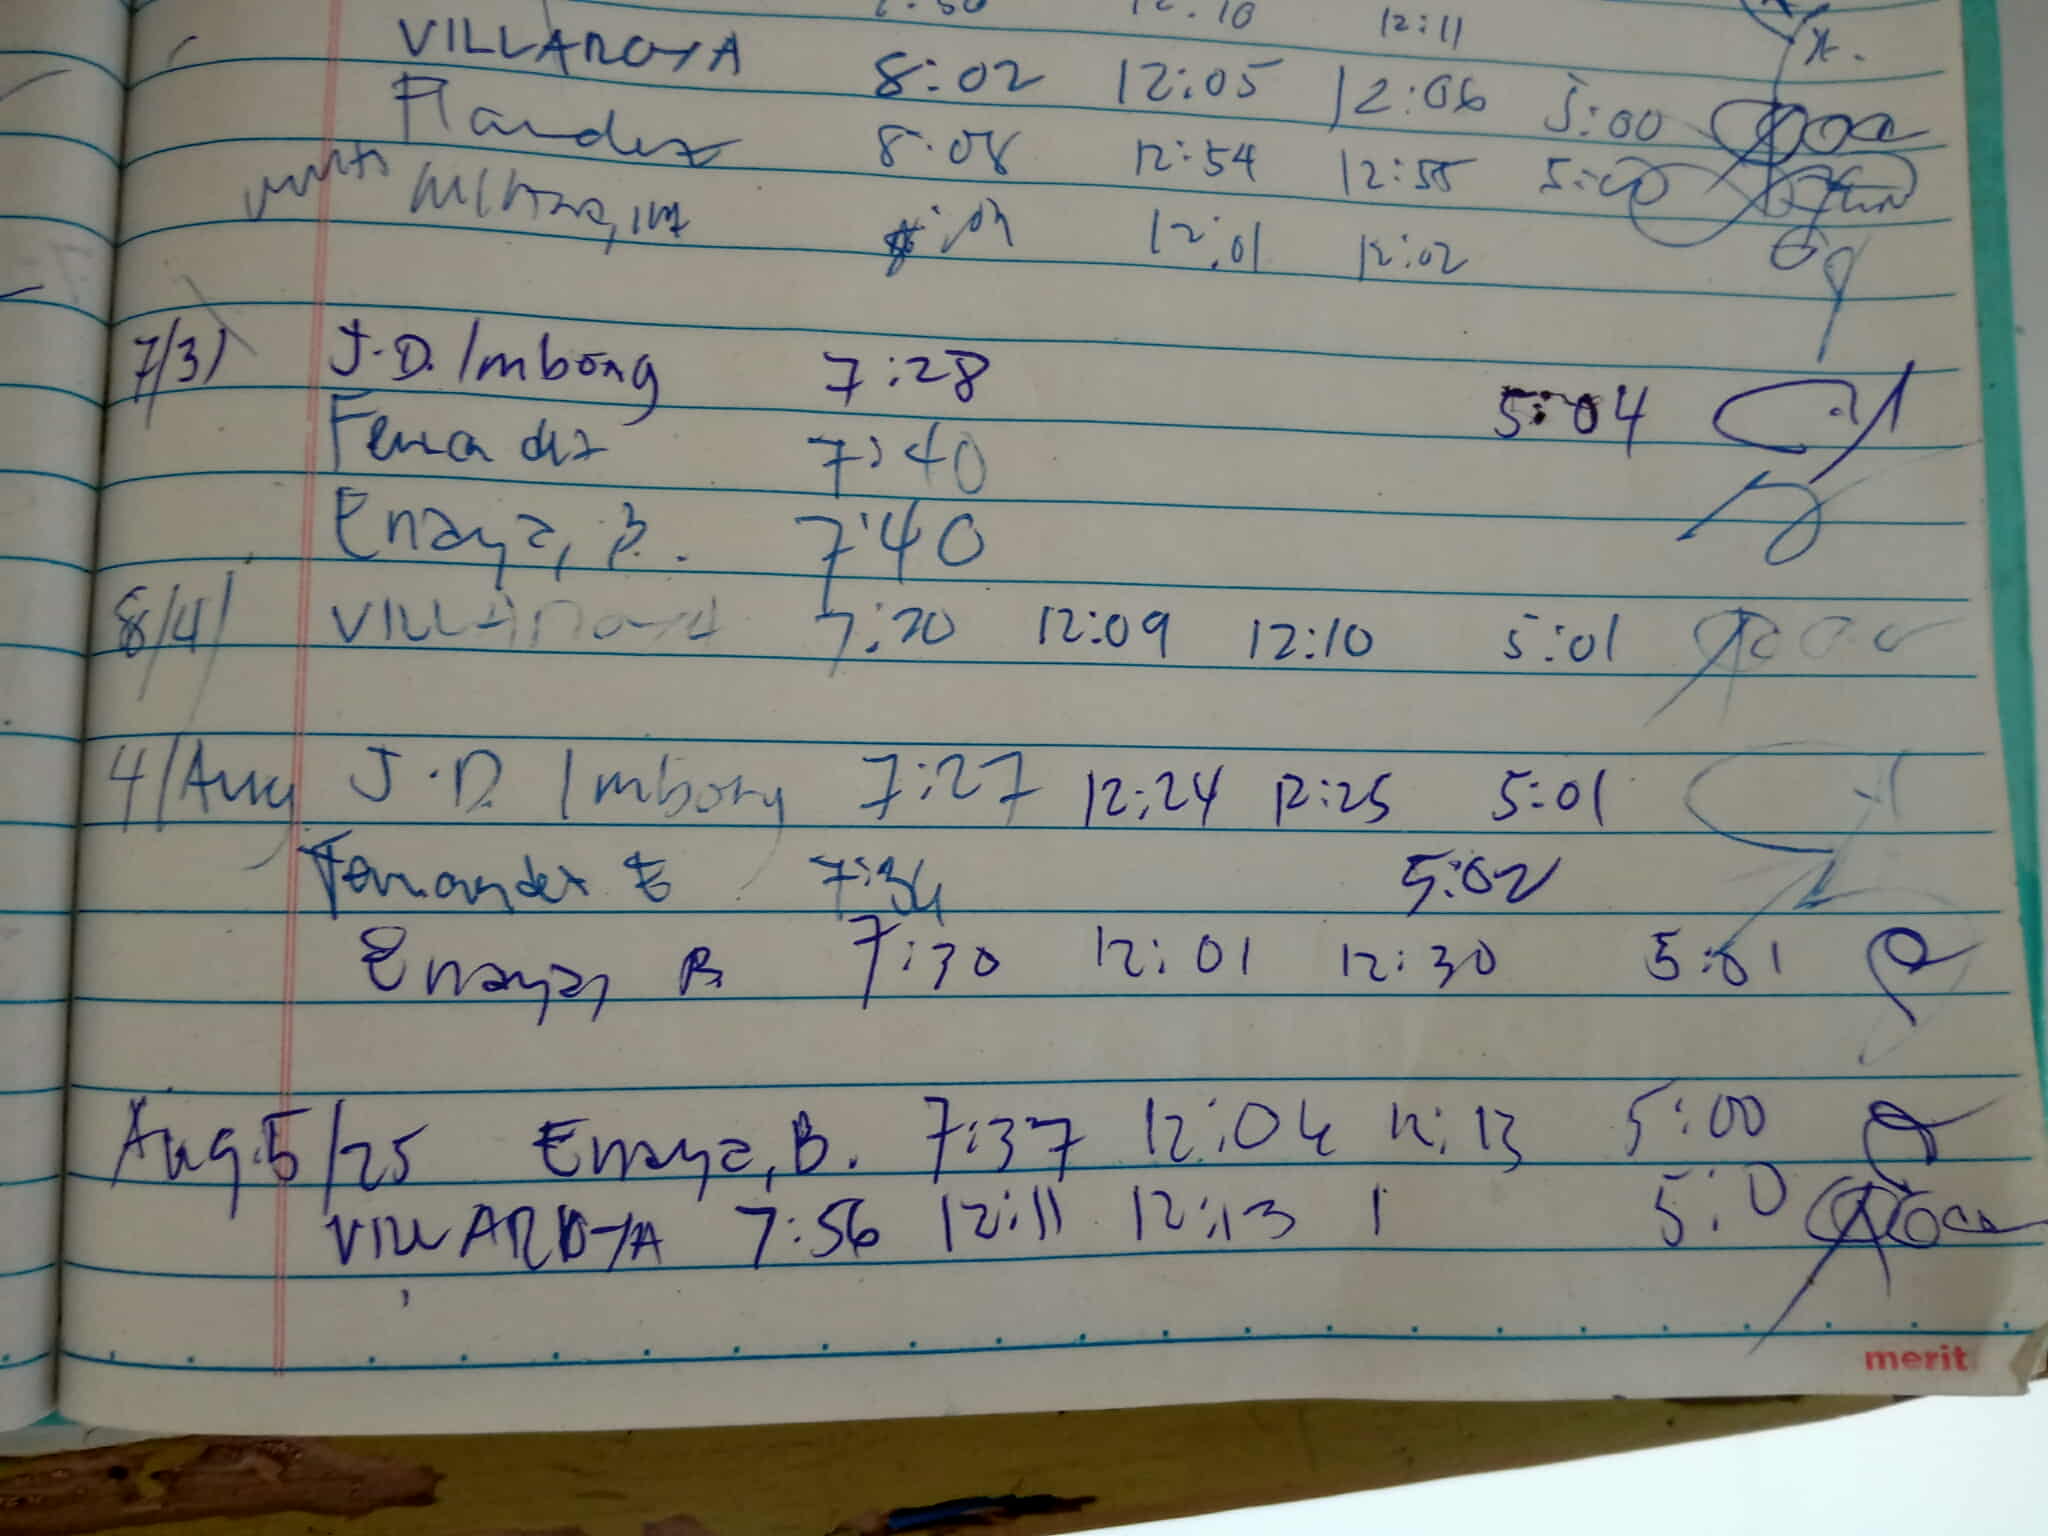 12:10 12:11
VILLAROYA 8:02 12:05 12:06 5:00
Flandez 8:08 12:54 12:55 5:00
12:01 12:02
7/31 J.D. Imbong 7:28 5:04
Fernandez 7:40
Enaya, B. 7:40
8/4/ VILLAROYA 7:20 12:09 12:10 5:01
4/Aug J.D. Imbong 7:27 12:24 12:25 5:01
Fernandez E 7:34 5:02
Enaya, B 7:30 12:01 12:30 5:01
Aug.5/25 Enaya, B. 7:37 12:04 12:13 5:00
VILLAROYA 7:56 12:11 12:13 1 5:0
merit